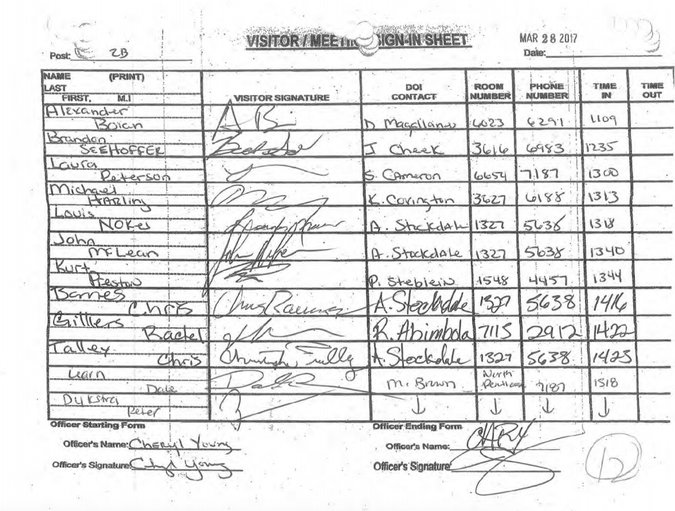 VISITOR / MEETING SIGN-IN SHEET
MAR 28 2017
Post: 2B
Date:
NAME (PRINT)
LAST
FIRST, M.I
VISITOR SIGNATURE
DOI CONTACT
ROOM NUMBER
PHONE NUMBER
TIME IN
TIME OUT
Alexander
Boian D Magallanes 6023 6291 1109
Brandon
SEEHOFFER J Cheek 3616 6983 1235
Laura
Peterson S. Cameron 6654 7187 1300
Michael
HARLing K. Covington 3627 6188 1313
Louis
NOKes A. Stockdale 1327 5638 1318
John
McLean A. Stockdale 1327 5638 1340
Kurt
Preston P. Steblein 1548 4457 1344
Barnes
Chris A. Stockdale 1327 5638 1416
Gilliers
Rachel R. Abimbola 7115 2912 1422
Talley
Chris A. Stockdale 1327 5638 1423
Dale M. Brown 7187 1518
Dykstra
Peter
Officer Starting Form
Officer Ending Form
Officer's Name: Cheryl Young
Officer's Name:
Officer's Signature: Cheryl Young
Officer's Signature
12